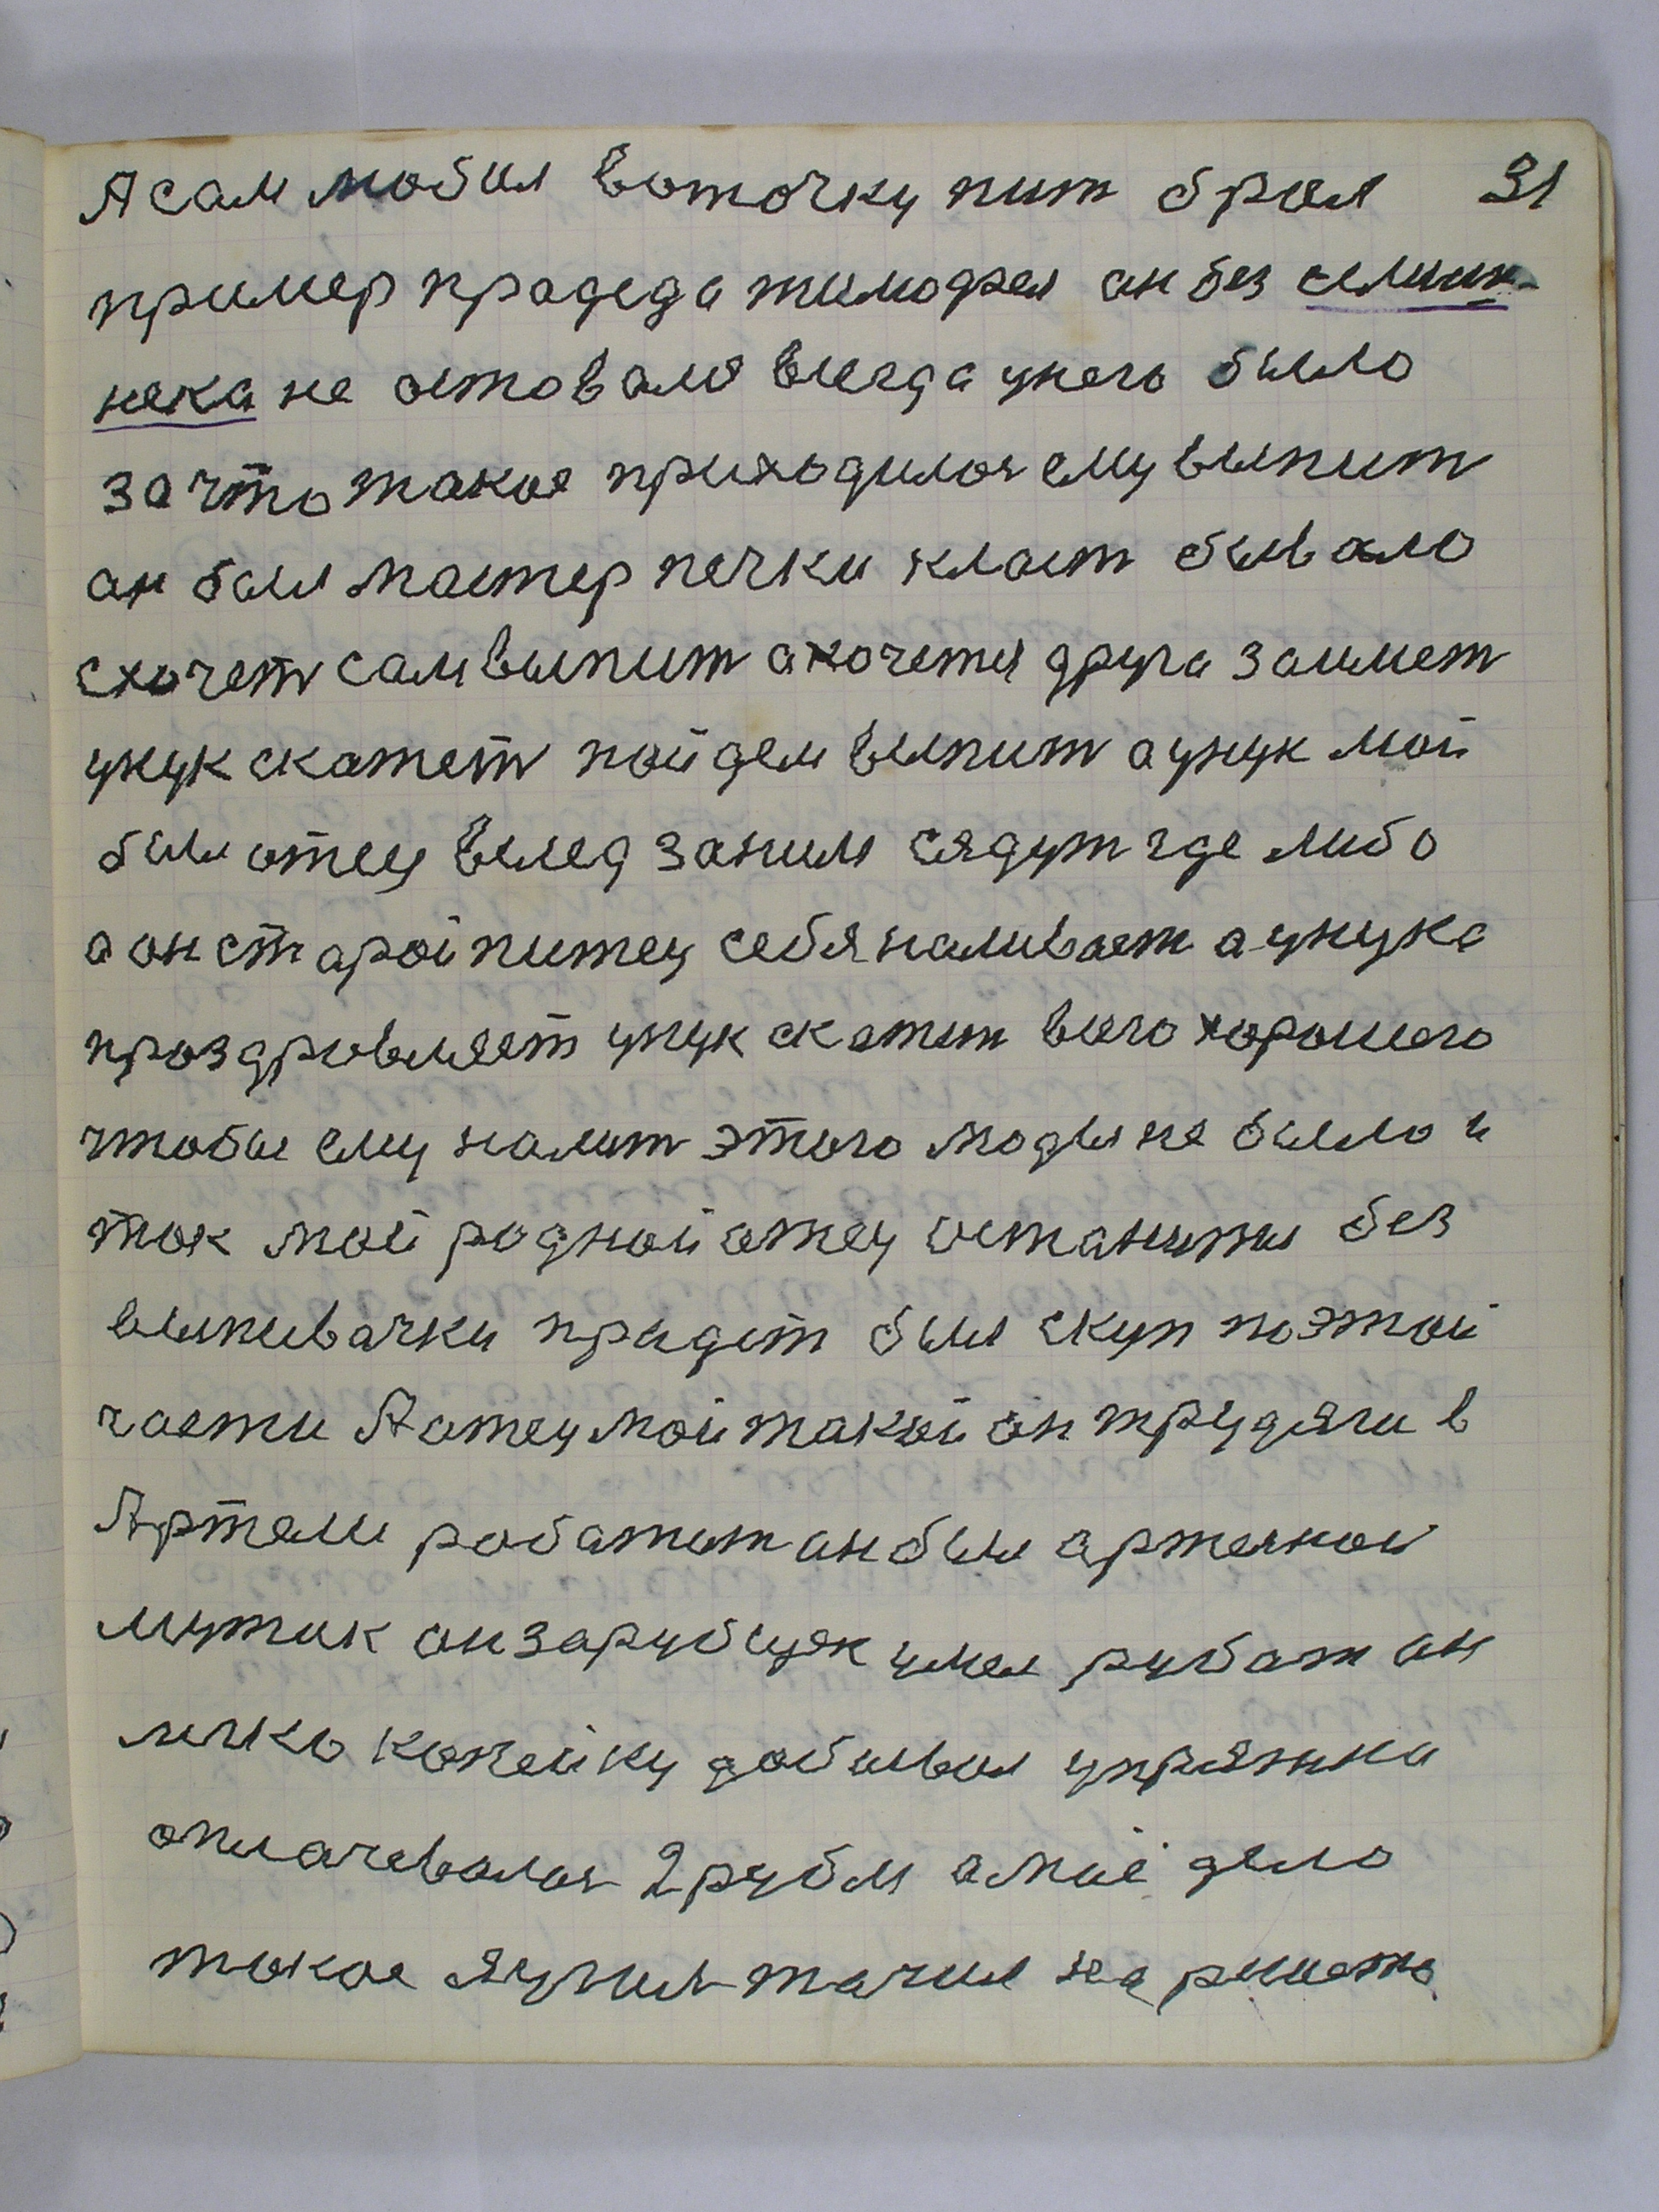 А сам любил воточку пит брал 31
пример прадеда тимофея ан без семиш-
нека не астоваля всегда унего было
за что такое приходилоя ему выпит
ан был мастер печки класт бывало
схочет сам выпит а хочетя друга займет
унук скажет пойдем выпит а унук мой
был отец вслед заним сядут где либо
а он старой питец себя наливает а унука
проздровляет унук скажит всего хорошего
чтобы ему налит этого моды не было и
так мой родной отец останитя без
выпивачки прадет был скуп поэтой
части А отец мой такой ан трудяги в
Артели работит ан был артелной
мужик ан зарубцяк умел рубат ан
легко копейку добывал упряжка
оплачевалоя 2 рубля а маё дело
такое я учил тачил на решето